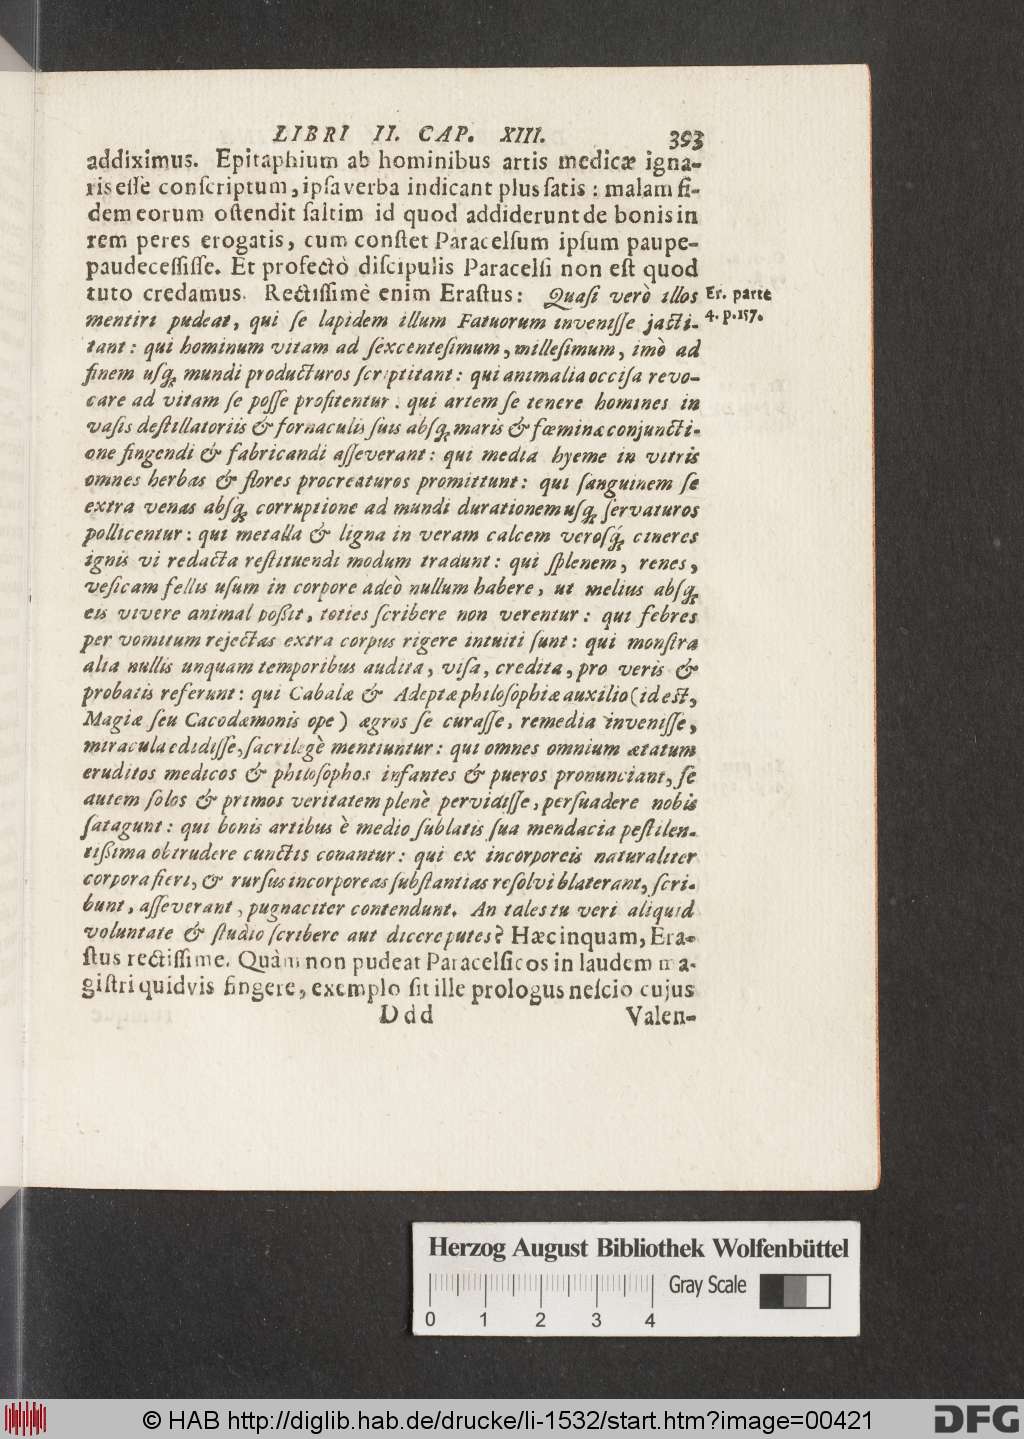 LIBRI II. CAP. XIII. 393
addiximus. Epitaphium ab hominibus artis medicæ igna-
ris eſſe conſcriptum, ipſa verba indicant plus ſatis : malam fi-
dem eorum oſtendit ſaltim id quod addiderunt de bonis in
rem peres erogatis, cum conſtet Paracelſum ipſum paupe-
paudeceſſiſſe. Et profectò diſcipulis Paracelſi non eſt quod
tuto credamus. Rectiſſimè enim Eraſtus: Quaſi verò illos
Er. parte
4. p. 157.
mentiri pudeat, qui ſe lapidem illum Fatuorum inveniſſe jacti-
tant: qui hominum vitam ad ſexcenteſimum, milleſimum, imò ad
finem uſq; mundi producturos ſcriptitant: qui animalia occiſa revo-
care ad vitam ſe poſſe profitentur. qui artem ſe tenere homines in
vaſis deſtillatoriis & fornaculis ſuis abſq; maris & fœminæ conjuncti-
one fingendi & fabricandi aſſeverant: qui media hyeme in vitris
omnes herbas & flores procreaturos promittunt: qui ſanguinem ſe
extra venas abſq; corruptione ad mundi durationem uſq; ſervaturos
pollicentur: qui metalla & ligna in veram calcem veroſq́; cineres
ignis vi redacta reſtituendi modum tradunt: qui ſplenem, renes,
veſicam fellis uſum in corpore adeò nullum habere, ut melius abſq;
eis vivere animal poßit, toties ſcribere non verentur: qui febres
per vomitum rejectas extra corpus rigere intuiti ſunt: qui monſtra
alia nullis unquam temporibus audita, viſa, credita, pro veris &
probatis referunt: qui Cabalæ & Adeptæ philoſophiæ auxilio (id eſt,
Magiæ ſeu Cacodæmonis ope) ægros ſe curaſſe, remedia inveniſſe,
miracula edidiſſe, ſacrilegè mentiuntur: qui omnes omnium ætatum
eruditos medicos & philoſophos infantes & pueros pronunciant, ſe
autem ſolos & primos veritatem plenè pervidiſſe, perſuadere nobis
ſatagunt: qui bonis artibus è medio ſublatis ſua mendacia peſtilen-
tißima obtrudere cunctis conantur: qui ex incorporeis naturaliter
corpora fieri, & rurſus incorporeas ſubſtantias reſolvi blaterant, ſcri-
bunt, aſſeverant, pugnaciter contendunt. An tales tu veri aliquid
voluntate & ſtudio ſcribere aut dicere putes? Hæc inquam, Era-
ſtus rectiſſime. Quàm non pudeat Paracelſicos in laudem ma-
giſtri quidvis fingere, exemplo ſit ille prologus neſcio cujus
Ddd Valen-
Herzog August Bibliothek Wolfenbüttel
Gray Scale
0 1 2 3 4
© HAB http://diglib.hab.de/drucke/li-1532/start.htm?image=00421
DFG